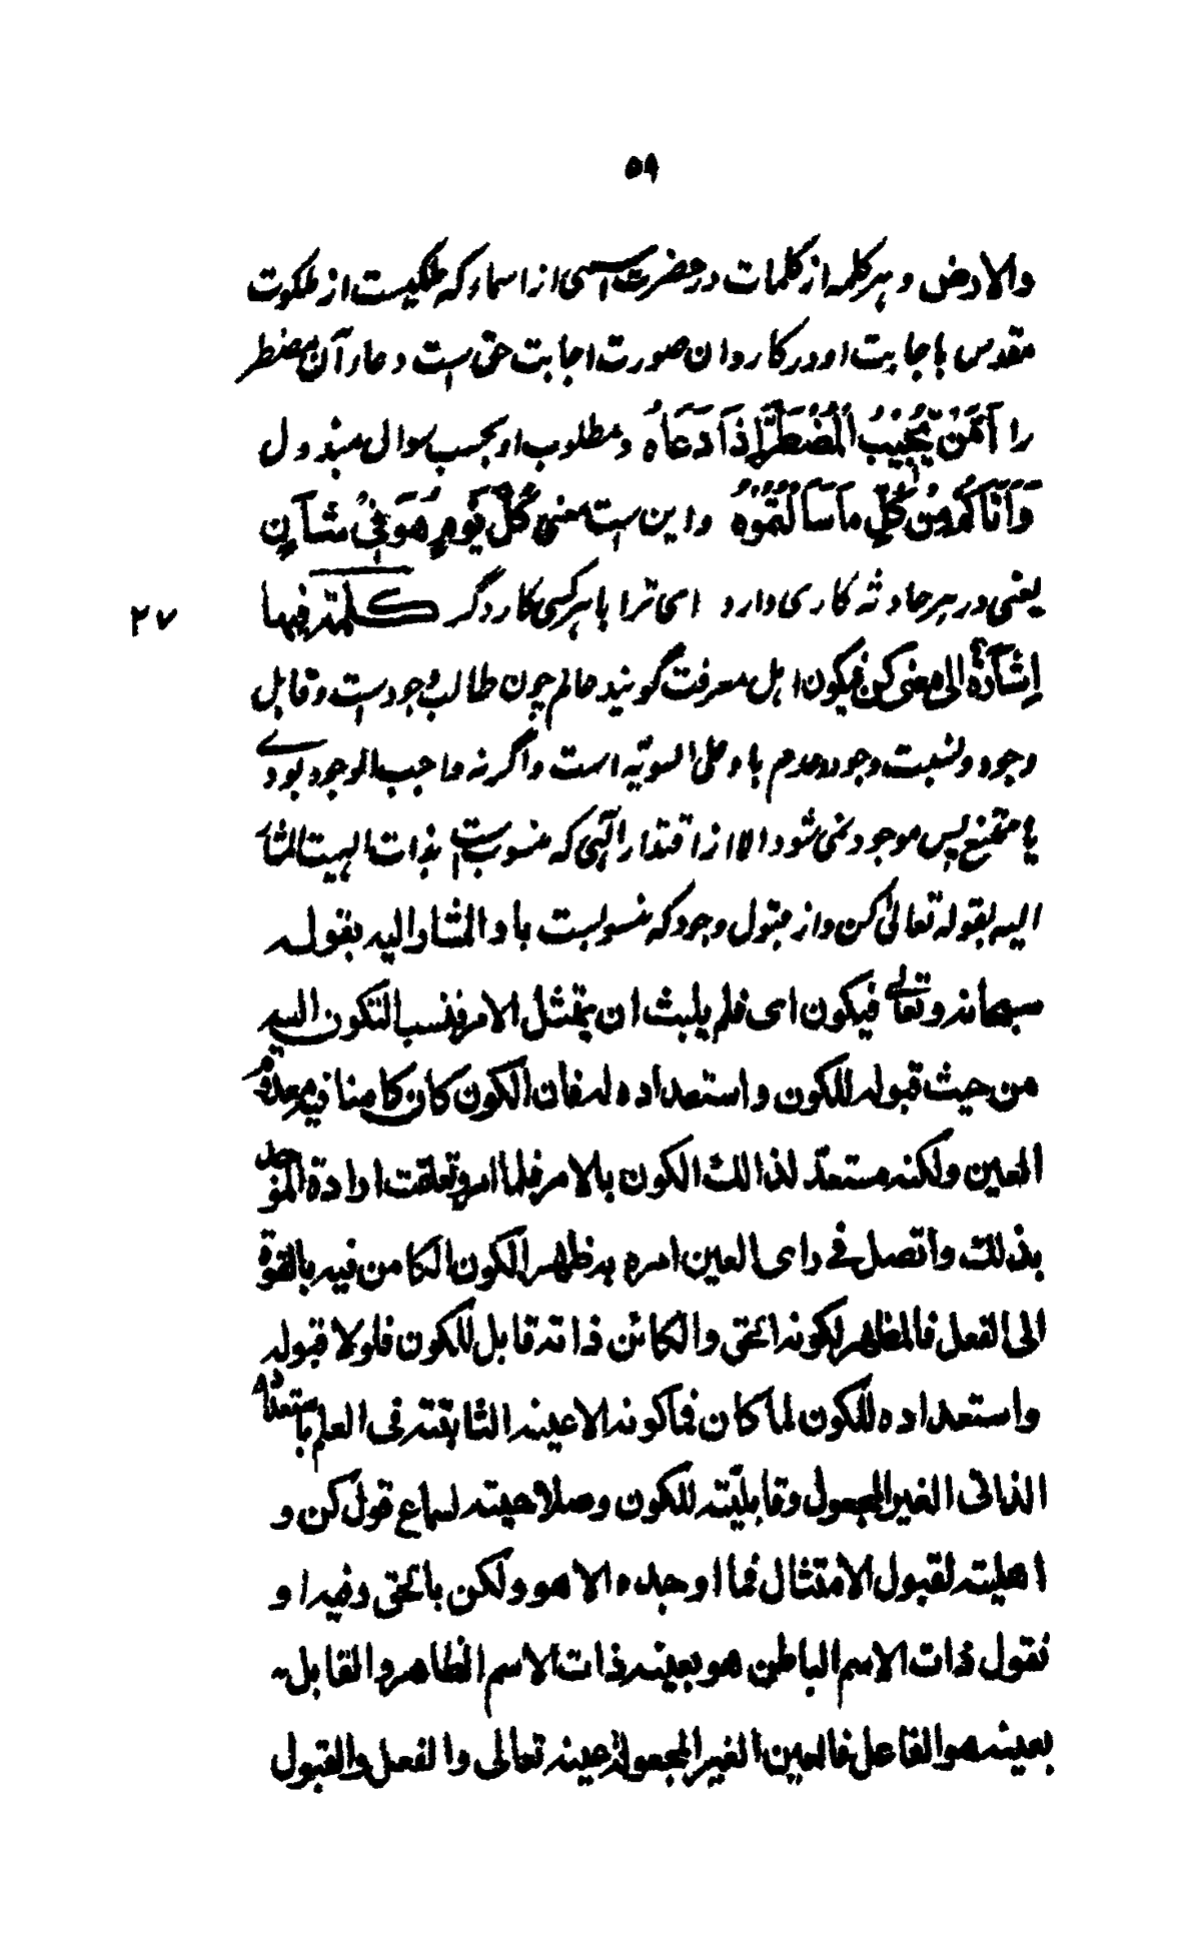 ۵۹
والارض و هر کلمه از کلمات در حضرت اسمی از اسماء که ملکیست از ملکوت
مقدس باجابت او در کار و ان صورت اجابت حق است دعاء آن مضطر
را اَمَّنْ يُّجِيْبُ الْمُضْطَرَّ اِذَا دَعَاهُ و مطلوب او بحسب سوال مبذول
وَاٰتَاكُمْ مِنْ كُلِّ مَا سَاَلْتُمُوْهُ و این ست معنی كُلَّ يَوْمٍ هُوَ فِيْ شَأْنٍ
یعنی در هر حادثه کاری دارد ای ترا با هر کسی کار دگر كلمة فيها
۲۷
اِشَارَةٌ الى معنى كن فيكون اهل معرفت گویند عالم چون طالب وجود ست و قابل
وجود و نسبت وجود و عدم با و علی السویه است و اگر نه واجب الوجود بودے
یا ممتنع پس موجود نمی شود الا از اقتدار الٰهی که منسوب ست بذات الهیت المشار
الیه بقوله تعالیٰ کن و از قبول وجود که منسوبست باو المشار الیه بقوله
سبحانه وتعالى فيكون اى فلم يلبث ان يمتثل الامر فنسب التكون اليه
من حيث قبوله للكون واستعداده له فان الكون كان كامنا فيه معدوم
العين ولكنه مستعدّ لذالك الكون بالامر فلما امر وتعلقت ارادة الموجد
بذلك واتصل فى راى العين امره به ظهر الكون الكامن فيه بالقوة
الى الفعل فالمظهر لكونه الحق والكائن ذاته قابل للكون فلولا قبوله
واستعداده للكون لما كان فما كونه الا عينه الثابتة فى العلم باستعداده
الذاتى الغير المجعول وقابليّته للكون وصلاحيته لسماع قول كن و
اهليته لقبول الامتثال فما اوجده الا هو ولكن بالحق وفيه او
نقول ذات الاسم الباطن هو بعينه ذات الاسم الظاهر والقابل
بعينه هو الفاعل فالعين الغير المجعولة عينه تعالى والفعل والقبول